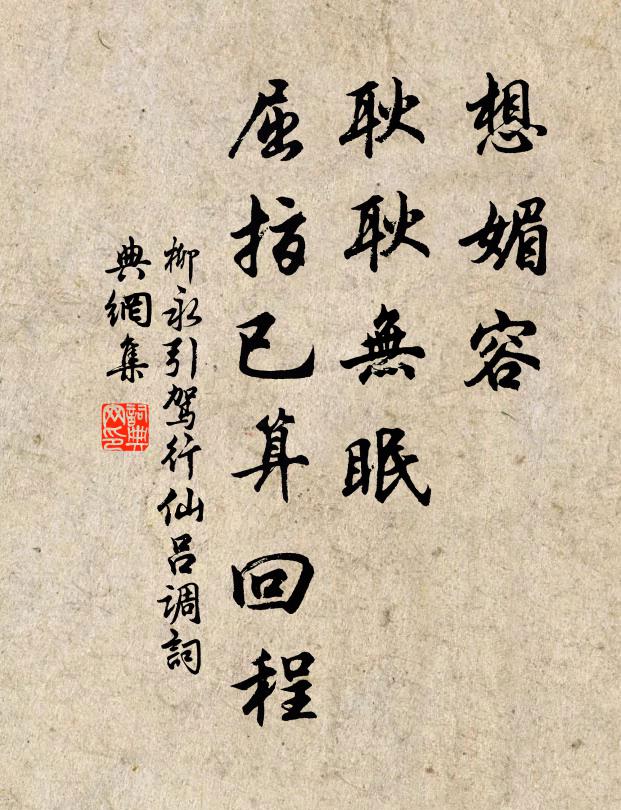 想媚容
耿耿無眠
屈指已算回程
柳永引駕行仙呂調詞
典網集
詞典網印